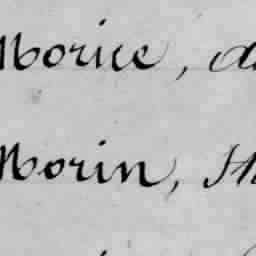 Morice, d
Morin, H